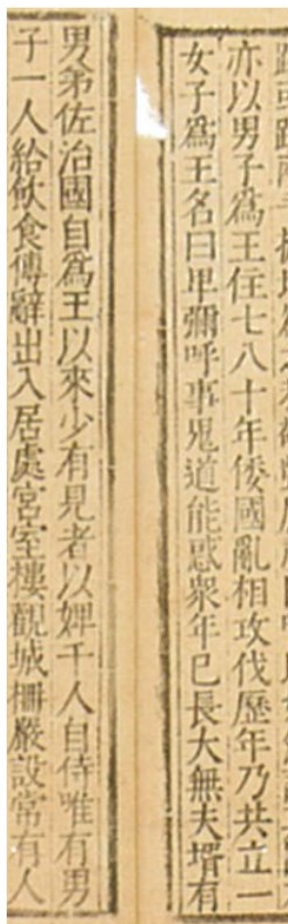 亦以男子爲王住七八十年倭國亂相攻伐歷年乃共立一
女子爲王名曰卑彌呼事鬼道能惑衆年已長大無夫壻有
男弟佐治國自爲王以來少有見者以婢千人自侍唯有男
子一人給飲食傳辭出入居處宮室樓觀城柵嚴設常有人